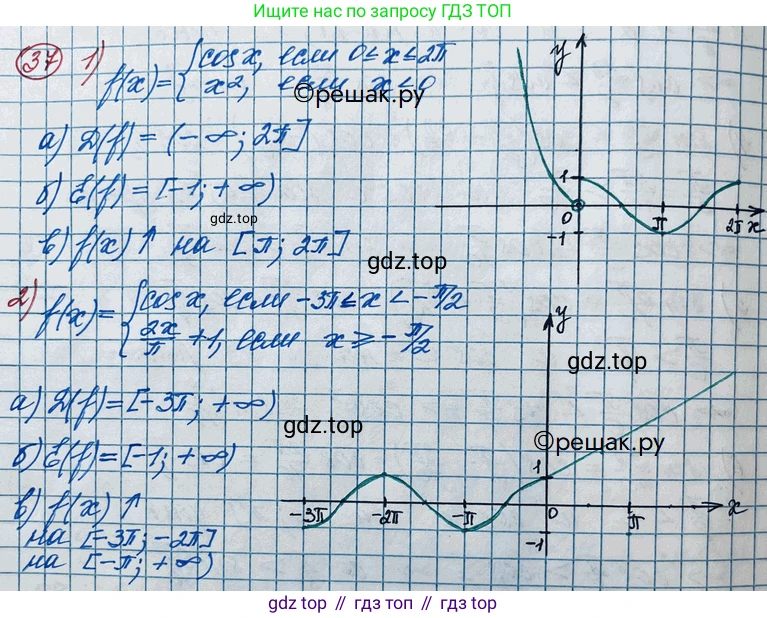 Ищите нас по запросу ГДЗ ТОП
37 1) f(x) = { cos x, если 0 ≤ x ≤ 2π
x², если x < 0
©решак.ру
а) D(f) = (-∞; 2π]
б) E(f) = [-1; +∞)
gdz.top
в) f(x) ↑ на [π; 2π]
gdz.top
y
1
0
π
2π x
-1
2) f(x) = { cos x, если -3π ≤ x < -π/2
2x/π + 1, если x ≥ -π/2
gdz.top
а) D(f) = [-3π; +∞)
gdz.top
©решак.ру
б) E(f) = [-1; +∞)
в) f(x) ↑
на [-3π; -2π]
на [-π; +∞)
y
1
-3π -2π -π 0 π x
-1
gdz.top // гдз топ // gdz top